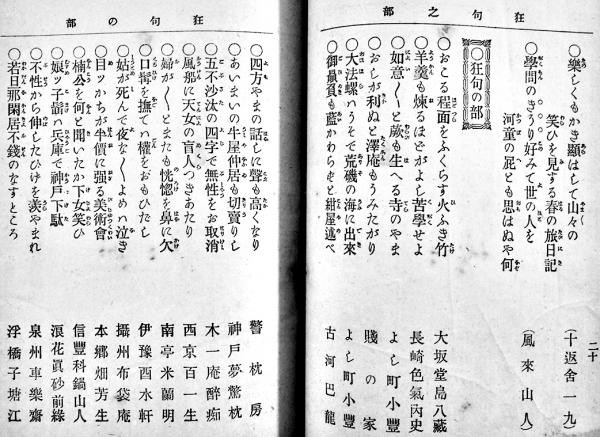 狂句之部
二十
○樂しくもかき顯はして山々の
笑ひを見する春の旅日記
(十返舍一九)
○學問のきうり好みて世の人を
河童の屁とも思はぬや何
(風來山人)
○狂句の部
○おこる程面をふくらす火ふき竹
大坂堂島八藏
○羊羹も煉るほどがよし苦學せよ
長崎色氣内史
○如意〳〵と蕨も生へる寺のやま
よし町小豐
○おしが利ぬと澤庵もうみたがり
賤の家
○大法螺ハうそで荒磯の海に出來
よし町小豐
○御贔負も藍かわらぬと紺屋述べ
古河巴龍
狂句の部
○四方やまの話しに聲も高くなり
警枕房
○あいまいの牛屋仲居も切賣りし
神戸夢驚枕
○五不沙汰の四字で無性をお取消
木一庵醉痴
○風邪に天女の盲人つきあたり
西京百一生
○婦が〳〵とまたも恍惚を鼻に欠
南亭米蘭明
○口髯を撫てハ權をおもひだし
伊豫酉水軒
○姑が死んで夜な〳〵よめハ泣き
攝州布袋庵
○目ッかちが半價に強る美術會
本郷畑芳生
○楠公を何と聞いたか下女笑ひ
信豐科鍋山人
○娘ッ子齠ハ兵庫で神戸下駄
浪花眞砂前綠
○不性から伸したひげを羨やまれ
泉州車樂齋
○若旦那閑居不錢のなすところ
浮橋子塘江